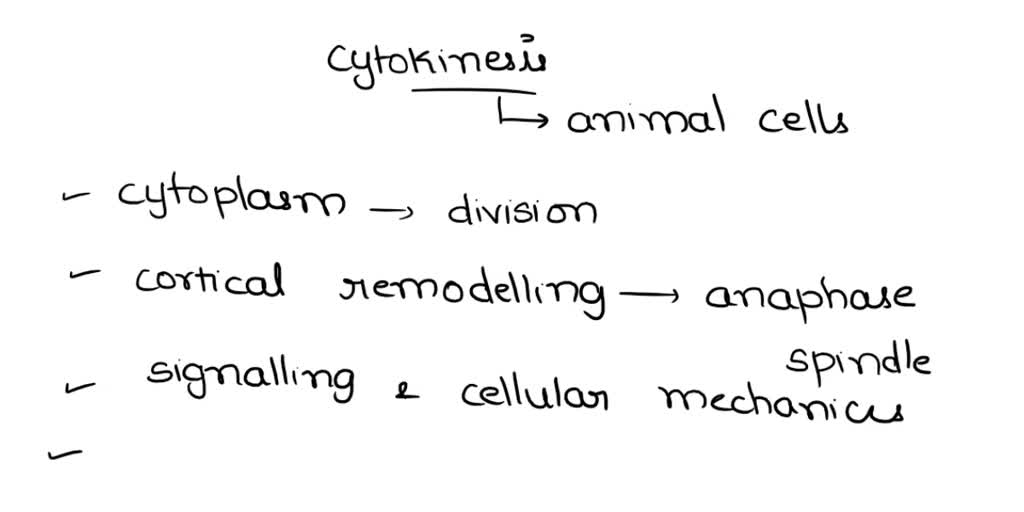 cytokinesis
↳ animal cells
✓ cytoplasm → division
✓ cortical remodelling → anaphase
spindle
✓ signalling & cellular mechanics
✓